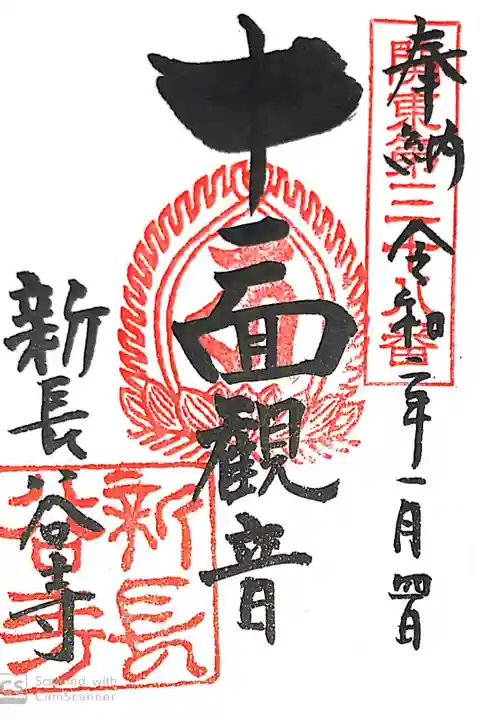 奉納 令和二年一月四日
關東第三十八番
十一面觀音
新長谷寺
新長
谷寺
CS Scanned with
CamScanner